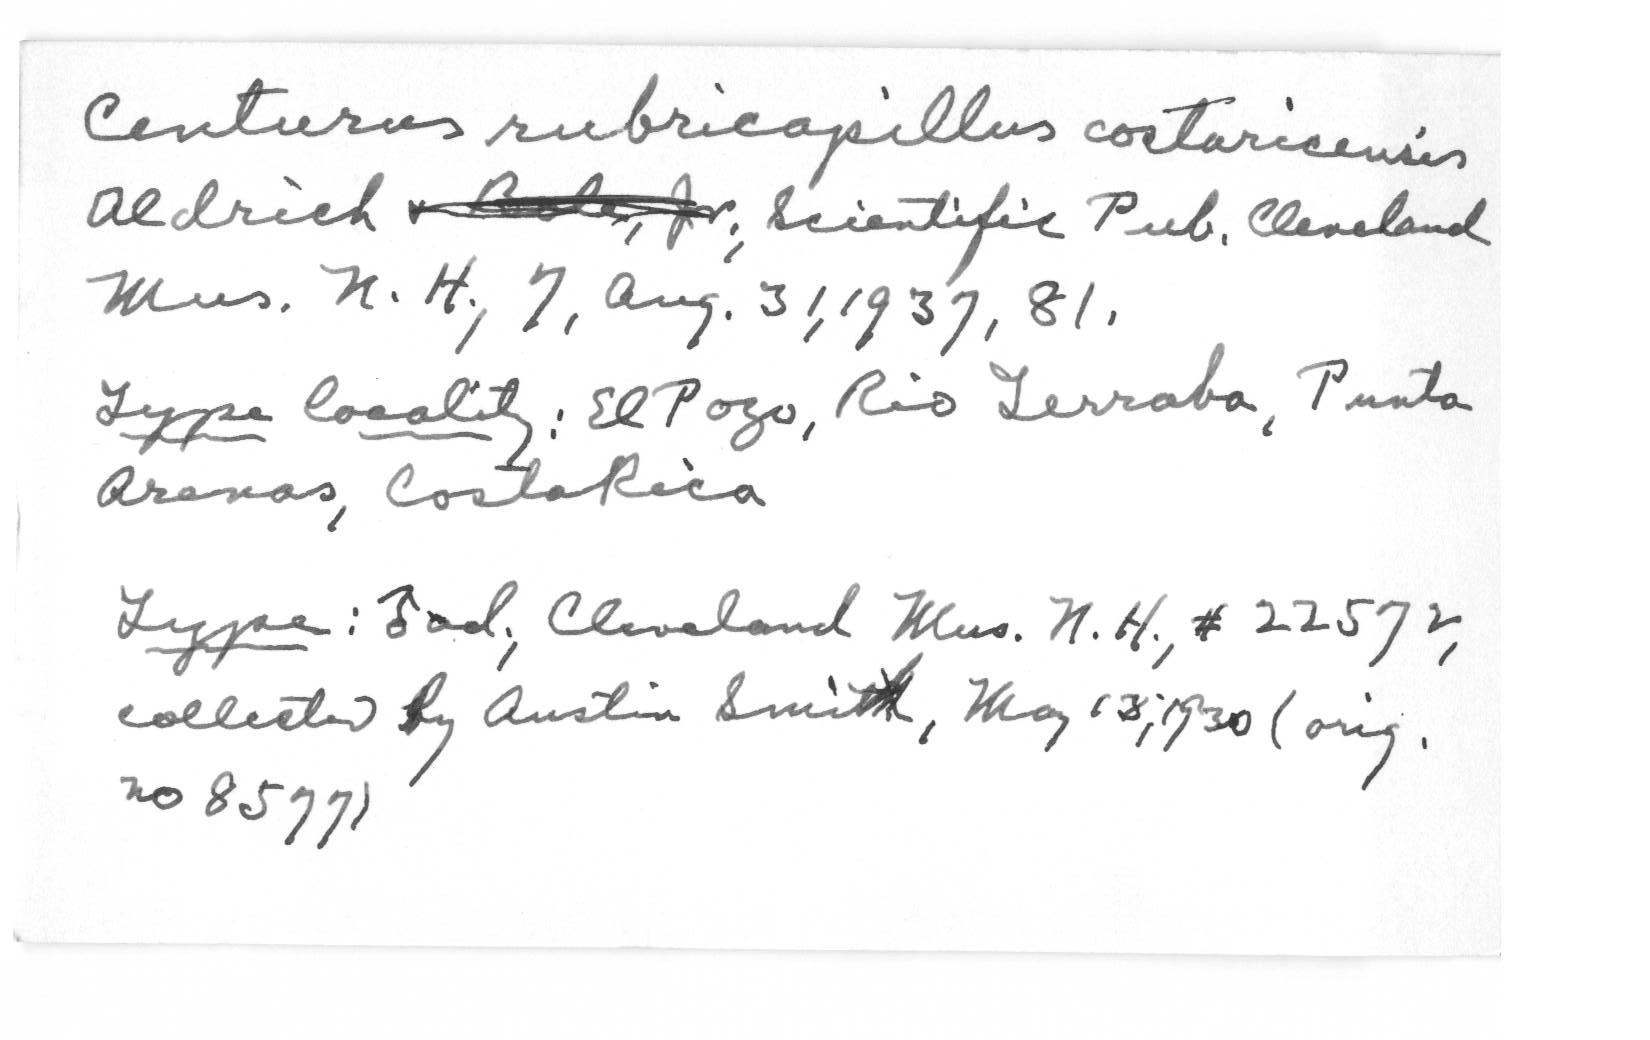 Centurus rubricapillus costaricensis
Aldrich & Bole, Jr.; Scientific Pub. Cleveland
Mus. N. H., 7, Aug. 31, 1937, 81.
Type locality: El Pozo, Rio Terraba, Punta
Arenas, Costa Rica
Type: ♂ ad., Cleveland Mus. N. H., # 22572,
collected by Austin Smith, May 13, 1930 (orig.
no 8577)